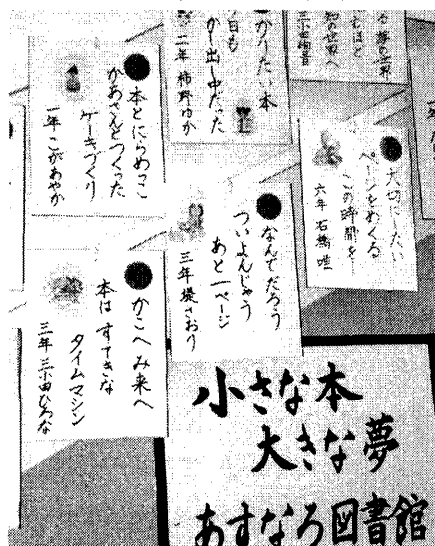 夢の世界
知の世界へ
かりたい本
日も
かし出し中だった
二年 柿野ゆか
本とにらめっこ
かあさんとつくった
ケーキづくり
一年 こがあやか
大切にしたい
ページをめくる
この時間を
六年 石橋
なんでだろう
ついよんじゃう
あと一ページ
三年 堤さおり
かこへみ来へ
本は すてきな
タイムマシン
三年 三小田ひろな
小さな本
大きな夢
あすなろ図書館